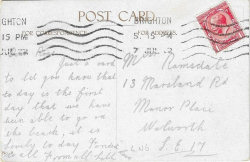 POST CARD
BRIGHTON
5. 15 PM
7 JUL
FOR CORRESPONDENCE
FOR ADDRESS
Just a card
to let you know that
to day is the first
day that we have
been able to go on
the beach, it is
lovely to day Fondest
all from all
Ramsdale
13 Marsland Rd
Manor Place
Walworth
S.E.17